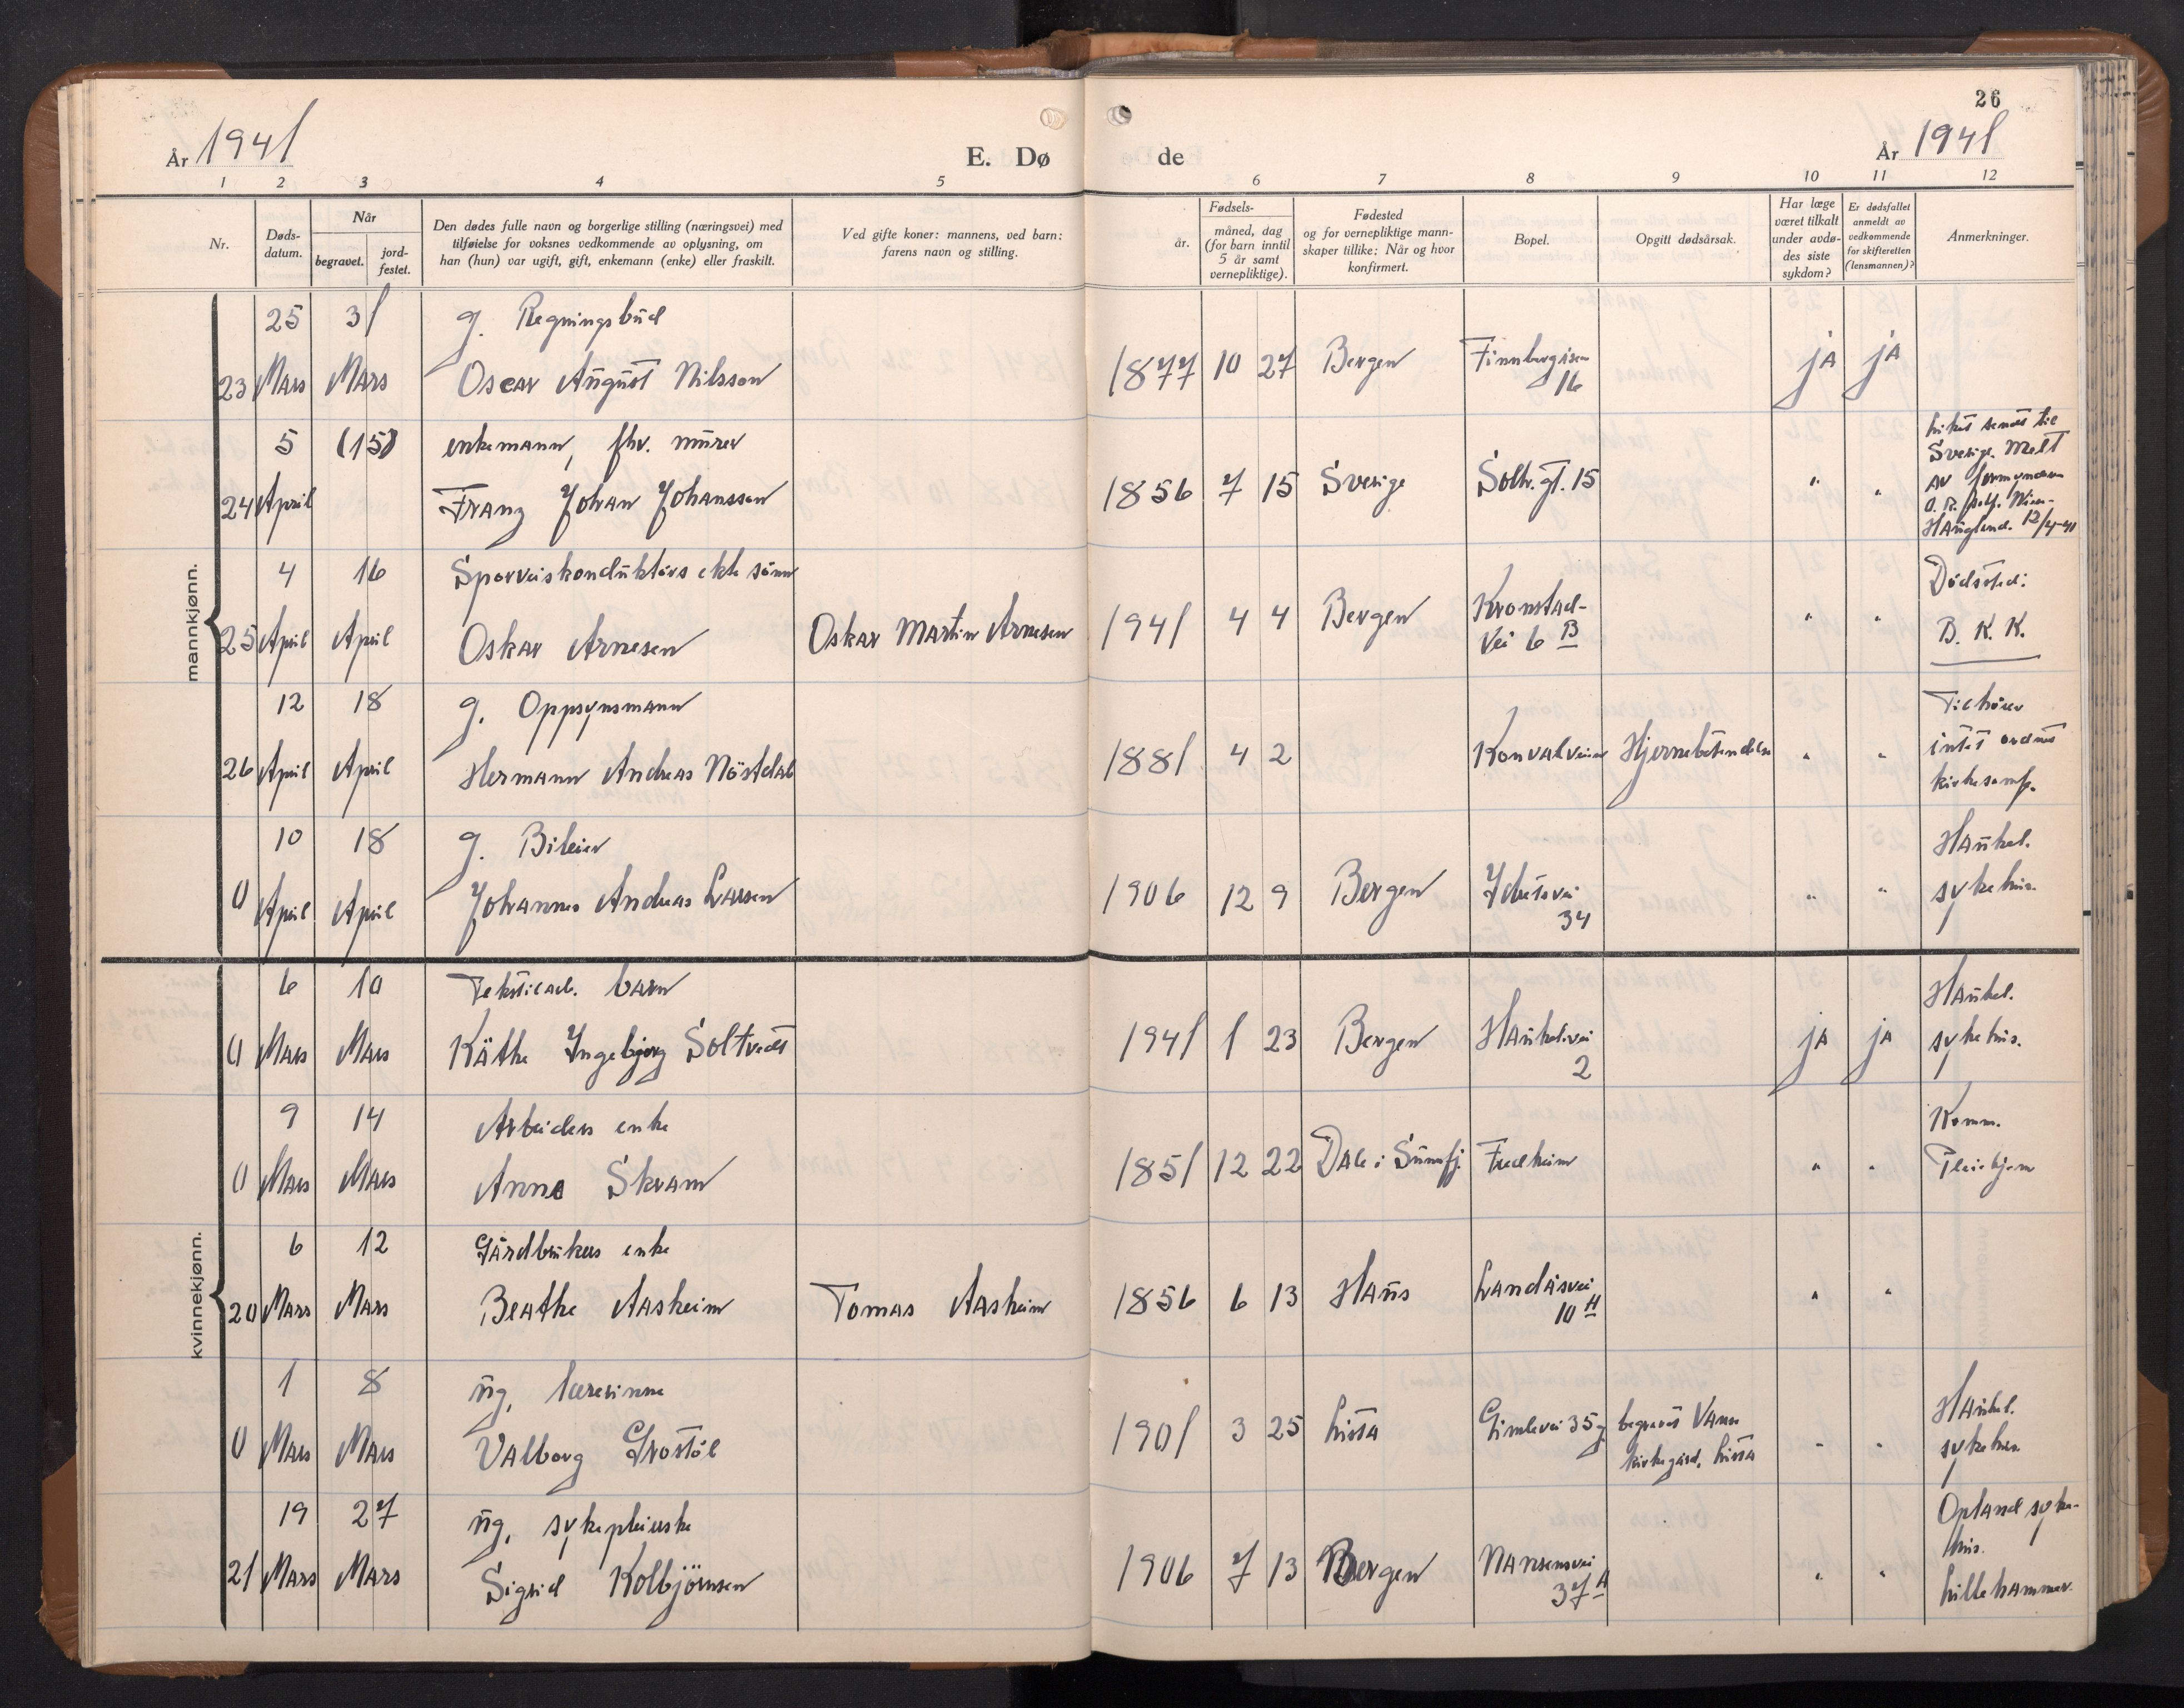 26
År 1941
E. Dø
de
År 1941
1 2 3 4 5 6 7 8 9 10 11 12
Nr.
Døds-
datum.
Når
begravet.
jord-
festet.
Den dødes fulle navn og borgerlige stilling (næringsvei) med
tilføielse for voksnes vedkommende av oplysning, om
han (hun) var ugift, gift, enkemann (enke) eller fraskilt.
Ved gifte koner: mannens, ved barn:
farens navn og stilling.
Fødsels-
år.
måned, dag
(for barn inntil
5 år samt
vernepliktige).
Fødested
og for vernepliktige mann-
skaper tillike: Når og hvor
konfirmert.
Bopel.
Opgitt dødsårsak.
Har læge
været tilkalt
under avdø-
des siste
sykdom?
Er dødsfallet
anmeldt av
vedkommende
for skifteretten
(lensmannen)?
Anmerkninger.
mannkjønn.
25 31 g. Regningsbud
23 Mars Mars Oscar August Nilsson 1877 10 27 Bergen Finnbergåsen
16
ja ja
5 (15) enkemann, fhv. murer
24 April Franz Johan Johansson 1856 7 15 Sverige Solhr. gt. 15 " "
Liket sendt til
Sverige. Melt
av formannen
Haugland. 12/4-41
4 16 Sporveiskonduktørs ekte sønn
25 April April Oskar Arnesen Oskar Martin Arnesen 1941 4 4 Bergen Kronstad-
vei 6 B
" "
Dødssted:
B. K. K.
12 18 g. Oppsynsmann
26 April April Hermann Andreas Nöstdal 1881 4 2 Konvalveien Hjernebetendelse " "
Tilhører
intet ordnet
kirkesamf.
10 18 g. Bileier
0 April April Johannes Andreas Larsen 1906 12 9 Bergen Ibsensvei
34
" "
Haukel.
sykehus.
kvinnekjønn.
6 10 Tekstilarb. barn
0 Mars Mars Käthe Ingebjørg Soltvedt 1941 1 23 Bergen Haukel.vei
2
ja ja
Haukel.
sykehus.
9 14 Arbeiders enke
0 Mars Mars Anna Skram 1851 12 22 Dale i Sunnfj. Fredheim " "
Komm.
Pleiehjem
6 12 Gårdbrukers enke
20 Mars Mars Beathe Aasheim Tomas Aasheim 1856 6 13 Haus Landåsvei
10 H
" "
1 8 ug. lærerinne
0 Mars Mars Valborg Grostöl 1901 3 25 Lista Gimlevei 35 g begravet Vanse
kirkegård, Lista
" "
Haukel.
sykehus
19 27 ug. sykepleierske
21 Mars Mars Sigrid Kolbjörnsen 1906 7 13 Bergen Nansensvei
37 A
" "
Opland syke-
hus.
Lillehammer.